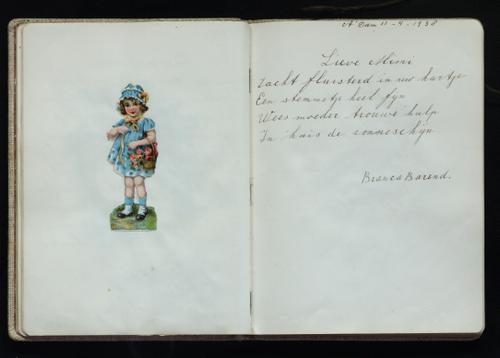 A'dam 11-4-1938
Lieve Mimi
Zacht fluisterd in uw hartje
Een stemmetje heel fijn
Wees moeder trouwe hulp
In huis de zonneschijn
Branca Barend.